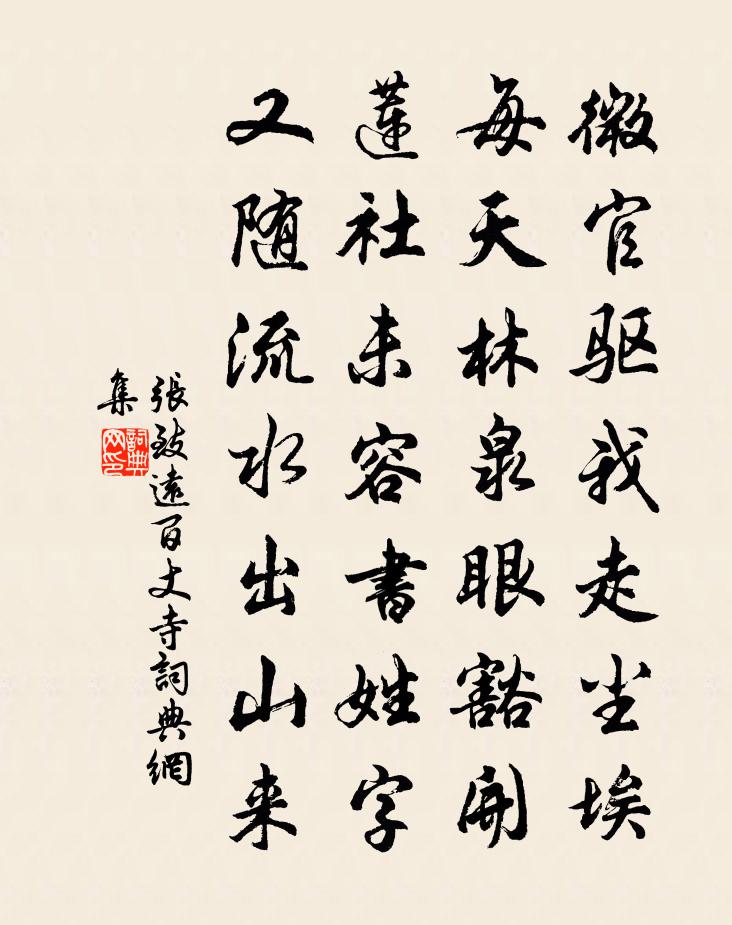 微官驱我走尘埃
每天林泉眼豁開
蓮社未容書姓字
又随流水出山来
張致遠百丈寺詞典網
集
詞典网印